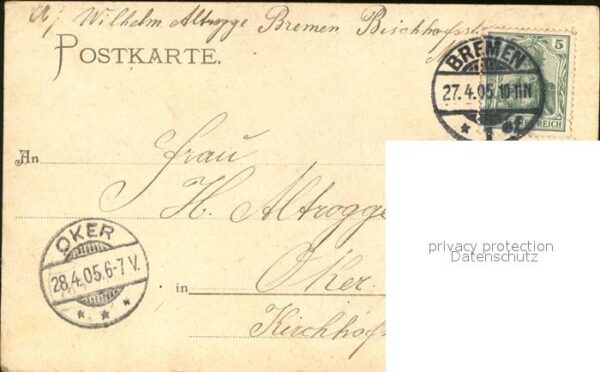 A/ Wilhelm Altrogge Bremen Bischhofsst
POSTKARTE.
5
BREMEN
27.4.05.10-11N
* 1 *
REICH
An Frau
H. Altrogge
privacy protection
Datenschutz
OKER
28.4.05.6-7V.
* * *
in Oker.
Kirchhof